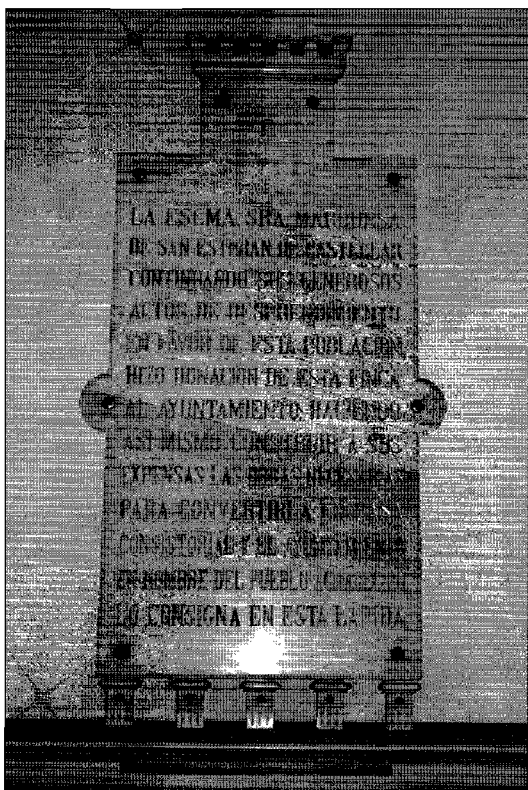 LA ESCMA. SRA. MARQUESA
DE SAN ESTEBAN DE CASTELLAR
CONTINUANDO SUS GENEROSOS
ACTOS DE
EN FAVOR DE ESTA POBLACION
HIZO DONACION DE ESTA FINCA
AL AYUNTAMIENTO, HACIENDO
ASI MISMO CONSTRUIR A SUS
EXPENSAS LAS OBRAS NECESARIAS
PARA CONVERTIRLA EN
CONSISTORIAL Y EL AYUNTAMIENTO
EN NOMBRE DEL PUEBLO
LO CONSIGNA EN ESTA LAPIDA